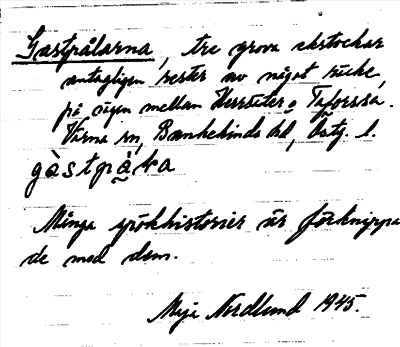 Gastpålarna, tre grova ekstockar
antagligen rester av något räcke,
på vägen mellan Herrsäter o Taforssa.
Värna sn, Bankekinds hd, Östg. l.
gàstpå̀ka
Många spökhistorier är förknippa
de med dem.
Meje Nordlund 1945.